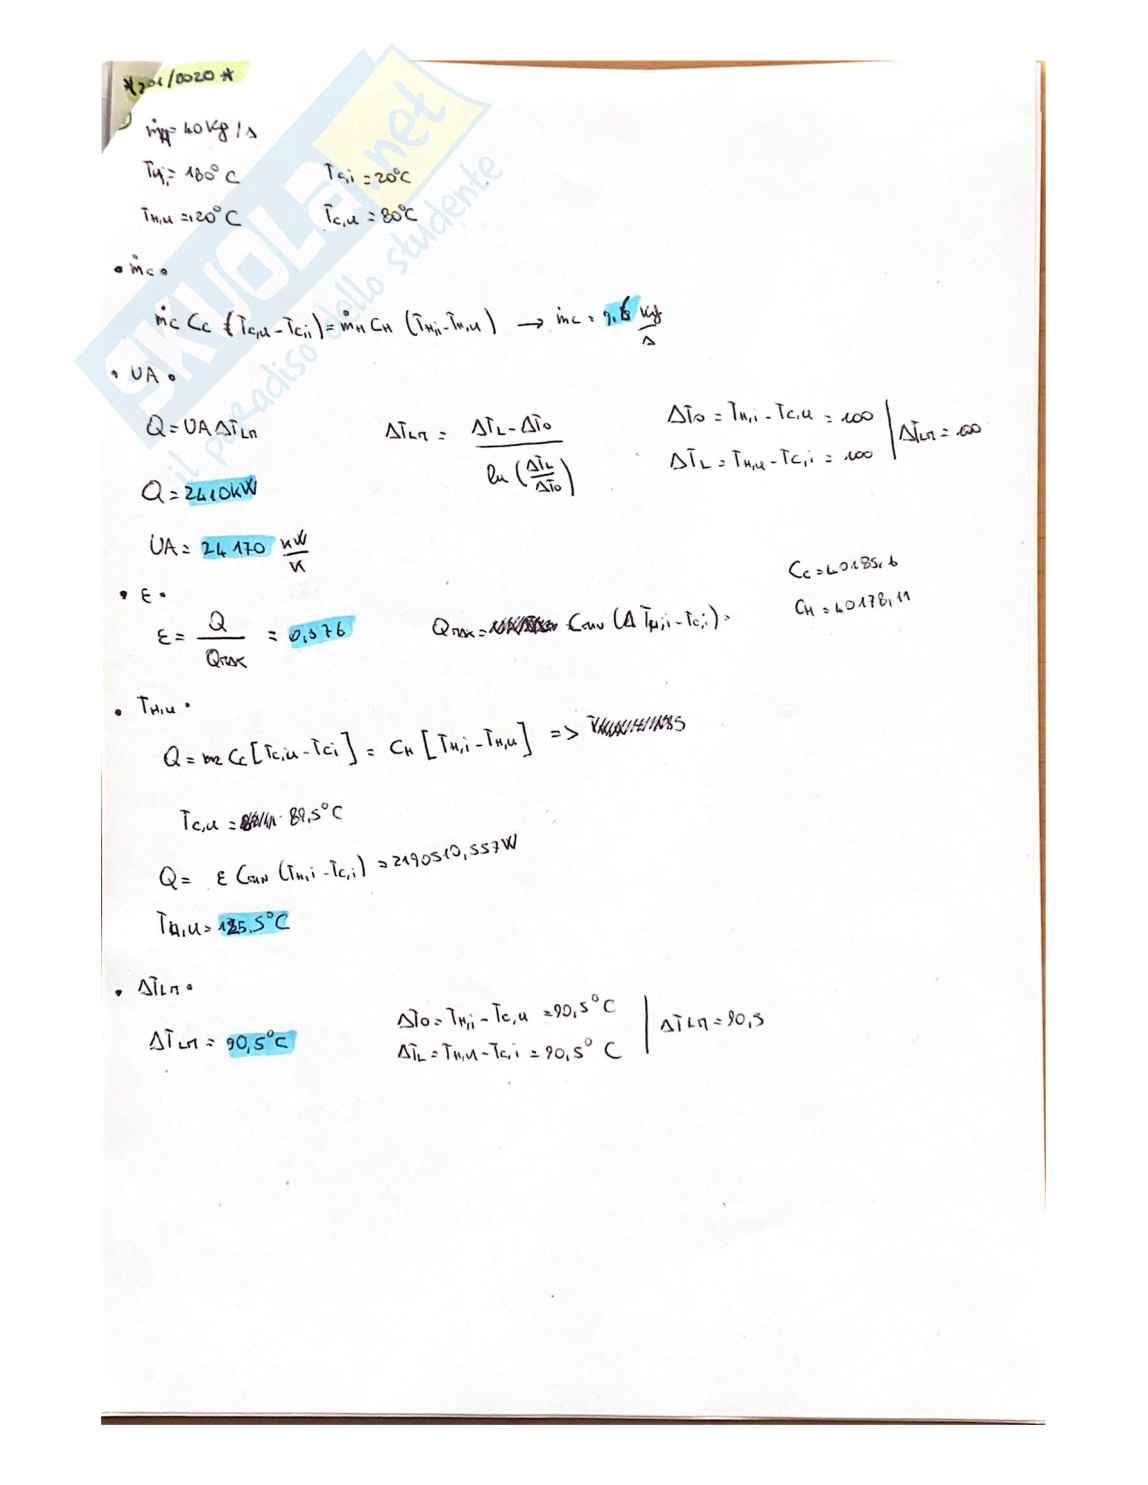 ṁH = 40 Kg/s
TH,i = 180°C   Tc,i = 20°C
TH,u = 120°C   Tc,u = 80°C
SKUOLA.net
il paradiso dello studente
• ṁc •
ṁc Cc (Tc,u - Tc,i) = ṁH CH (TH,i - TH,u) → ṁc = 9.6 Kg/s
• UA •
Q = UA ΔTLM   ΔTLM = (ΔTL - ΔTo) / ln(ΔTL/ΔTo)   ΔTo = TH,i - Tc,u = 100
ΔTL = TH,u - Tc,i = 100 | ΔTLM = 100
Q = 2410 kW
UA = 24 170 kW/K
Cc = 40185,6
CH = 40178,11
• ε •
ε = Q/QMAX = 0,376   QMAX = Cmin (Δ TH,i - Tc,i) =
• TH,u •
Q = Cc [Tc,u - Tci] = CH [TH,i - TH,u] =>
Tc,u = 89,5°C
Q = ε Cmin (TH,i - Tc,i) = 2190510,557 W
TH,u = 125,5°C
• ΔTLM •
ΔTLM = 90,5°C   ΔTo = TH,i - Tc,u = 90,5°C
ΔTL = TH,u - Tc,i = 90,5°C | ΔTLM = 90,5